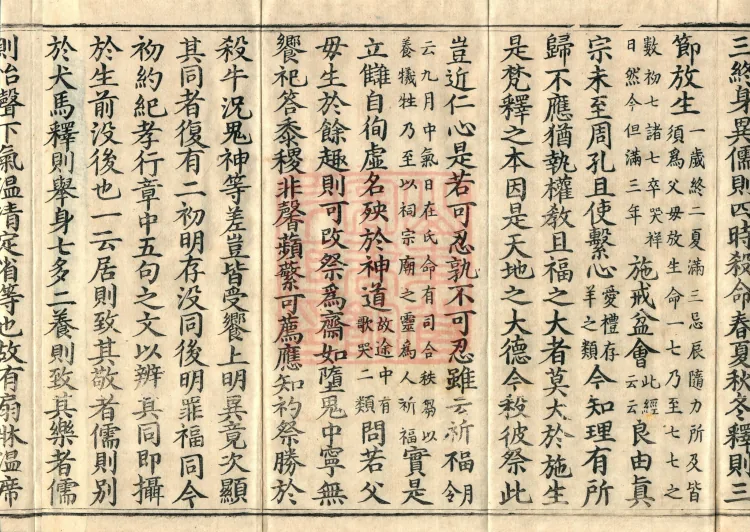 三終身異儒則四時殺命春夏秋冬釋則三
節放生一歲終二夏滿三忌辰隨力所及皆須爲父母放生命一七乃至七七之
數初七諸七卒哭祥日然今但滿三年施戒盆會此經云云良由真
宗未至周孔且使繫心愛禮存羊之類今知理有所
歸不應猶執權教且福之大者莫大於施生
是梵釋之本因是天地之大德今殺彼祭此
豈近仁心是若可忍孰不可忍雖云祈福月令
云九月中氣日在氐命有司合秩芻以養犧牲乃至以祠宗廟之靈爲人祈福實是
立讎自徇虛名殃於神道故途中有歌哭二類問若父
母生於餘趣則可改祭爲齋如墮鬼中寧無
饗祀答黍稷非馨蘋蘩可薦應知礿祭勝於
殺牛況鬼神等差豈皆受饗上明異竟次顯
其同者復有二初明存没同後明罪福同今
初約紀孝行章中五句之文以辨其同即攝
於生前没後也一云居則致其敬者儒則別
於犬馬釋則舉身七多二養則致其樂者儒
則怡聲下氣温清定省等也故有扇牀温席